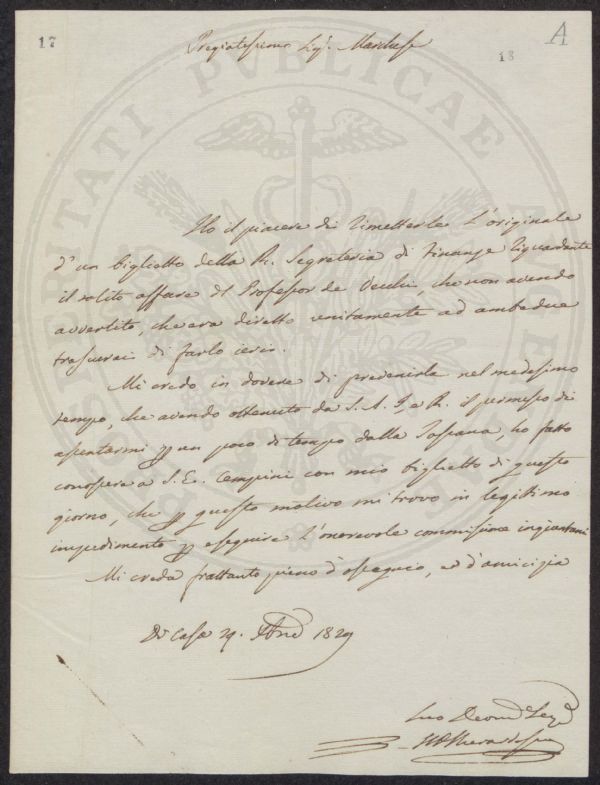 17
A
18
Pregiatissimo Sig.r Marchese
Ho il piacere di rimetterle l'originale
d'un biglietto della R. Segreteria di Finanze riguardante
il solito affare del Professor de Vecchi, che non avendo
avvertito, che era diretto unitamente ad ambedue
trascurai di farlo ieri.
Mi credo in dovere di prevenirla nel medesimo
tempo, che avendo ottenuto da S. A. I. e R. il permesso di
assentarmi per un poco di tempo dalla Toscana, ho fatto
conoscere a S. E. Cempini con mio biglietto di questo
giorno, che per questo motivo mi trovo in legittimo
impedimento per eseguire l'onorevole commissione ingiuntami
Mi creda frattanto pieno d'ossequio, ed d'amicizia
Di Casa 29. 1829
Suo
PROSPERITATI PVBLICAE AVGENDAE